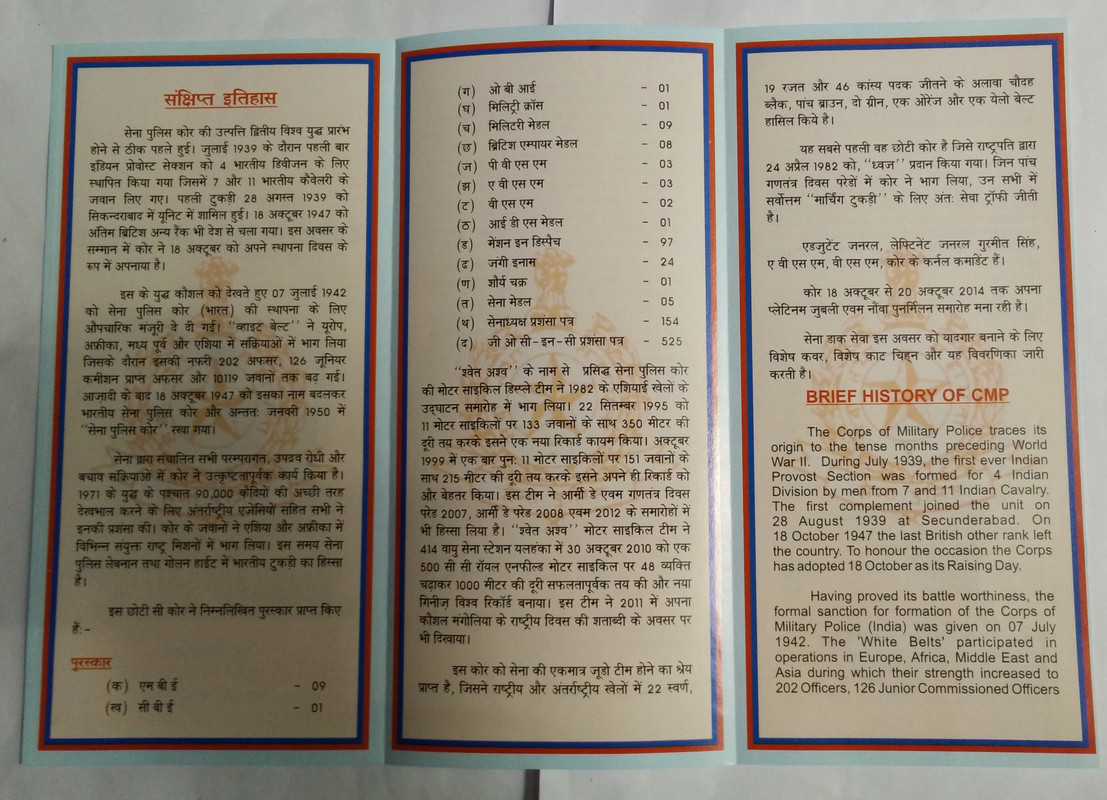 संक्षिप्त इतिहास
सेना पुलिस कोर की उत्पत्ति द्वितीय विश्व युद्ध प्रारंभ
होने से ठीक पहले हुई। जुलाई 1939 के दौरान पहली बार
इंडियन प्रोवोस्ट सेक्शन को 4 भारतीय डिवीजन के लिए
स्थापित किया गया जिसमें 7 और 11 भारतीय कैवेलरी के
जवान लिए गए। पहली टुकड़ी 28 अगस्त 1939 को
सिकन्दराबाद में यूनिट में शामिल हुई। 18 अक्टूबर 1947 को
अंतिम ब्रिटिश अन्य रैंक भी देश से चला गया। इस अवसर के
सम्मान में कोर ने 18 अक्टूबर को अपने स्थापना दिवस के
रूप में अपनाया है।
इस के युद्ध कौशल को देखते हुए 07 जुलाई 1942
को सेना पुलिस कोर (भारत) की स्थापना के लिए
औपचारिक मंजूरी दे दी गई। "व्हाइट बेल्ट" ने यूरोप,
अफ्रीका, मध्य पूर्व और एशिया में संक्रियाओं में भाग लिया
जिसके दौरान इसकी नफरी 202 अफसर, 126 जूनियर
कमीशन प्राप्त अफसर और 10119 जवानों तक बढ़ गई।
आजादी के बाद 18 अक्टूबर 1947 को इसका नाम बदलकर
भारतीय सेना पुलिस कोर और अन्ततः जनवरी 1950 में
"सेना पुलिस कोर" रखा गया।
सेना द्वारा संचालित सभी परम्परागत, उपद्रव रोधी और
बचाव संक्रियाओं में कोर ने उत्कृष्टतापूर्वक कार्य किया है।
1971 के युद्ध के पश्चात 90,000 कैदियों की अच्छी तरह
देखभाल करने के लिए अंतर्राष्ट्रीय एजेंसियों सहित सभी ने
इनकी प्रशंसा की। कोर के जवानों ने एशिया और अफ्रीका में
विभिन्न संयुक्त राष्ट्र मिशनों में भाग लिया। इस समय सेना
पुलिस लेबनान तथा गोलन हाईट में भारतीय टुकड़ी का हिस्सा
है।
इस छोटी सी कोर ने निम्नलिखित पुरस्कार प्राप्त किए
हैं:-
पुरस्कार
(क) एम बी ई - 09
(ख) सी बी ई - 01
(ग) ओ बी आई - 01
(घ) मिलिट्री क्रॉस - 01
(च) मिलिटरी मेडल - 09
(छ) ब्रिटिश एम्पायर मेडल - 08
(ज) पी वी एस एम - 03
(झ) ए वी एस एम - 03
(ट) वी एस एम - 02
(ठ) आई डी एस मेडल - 01
(ड) मेंशन इन डिस्पैच - 97
(ढ) जंगी इनाम - 24
(ण) शौर्य चक्र - 01
(त) सेना मेडल - 05
(थ) सेनाध्यक्ष प्रशंसा पत्र - 154
(द) जी ओ सी-इन-सी प्रशंसा पत्र - 525
"श्वेत अश्व" के नाम से प्रसिद्ध सेना पुलिस कोर
की मोटर साइकिल डिस्प्ले टीम ने 1982 के एशियाई खेलों के
उद्घाटन समारोह में भाग लिया। 22 सितम्बर 1995 को
11 मोटर साइकिलों पर 133 जवानों के साथ 350 मीटर की
दूरी तय करके इसने एक नया रिकार्ड कायम किया। अक्टूबर
1999 में एक बार पुनः 11 मोटर साइकिलों पर 151 जवानों के
साथ 215 मीटर की दूरी तय करके इसने अपने ही रिकार्ड को
और बेहतर किया। इस टीम ने आर्मी डे एवम गणतंत्र दिवस
परेड 2007, आर्मी डे परेड 2008 एवम 2012 के समारोहों में
भी हिस्सा लिया है। "श्वेत अश्व" मोटर साइकिल टीम ने
414 वायु सेना स्टेशन यलहंका में 30 अक्टूबर 2010 को एक
500 सी सी रॉयल एनफील्ड मोटर साइकिल पर 48 व्यक्ति
चढ़ाकर 1000 मीटर की दूरी सफलतापूर्वक तय की और नया
गिनीज़ विश्व रिकॉर्ड बनाया। इस टीम ने 2011 में अपना
कौशल मंगोलिया के राष्ट्रीय दिवस की शताब्दी के अवसर पर
भी दिखाया।
इस कोर को सेना की एकमात्र जूडो टीम होने का श्रेय
प्राप्त है, जिसने राष्ट्रीय और अंतर्राष्ट्रीय खेलों में 22 स्वर्ण,
19 रजत और 46 कांस्य पदक जीतने के अलावा चौदह
ब्लैक, पांच ब्राउन, दो ग्रीन, एक ओरेंज और एक येलो बेल्ट
हासिल किये है।
यह सबसे पहली वह छोटी कोर है जिसे राष्ट्रपति द्वारा
24 अप्रैल 1982 को, "ध्वज" प्रदान किया गया। जिन पांच
गणतंत्र दिवस परेडों में कोर ने भाग लिया, उन सभी में
सर्वोत्तम "मार्चिंग टुकड़ी" के लिए अंतः सेवा ट्रॉफी जीती
है।
एडजुटेंट जनरल, लेफ्टिनेंट जनरल गुरमीत सिंह,
ए वी एस एम, वी एस एम, कोर के कर्नल कमांडेंट हैं।
कोर 18 अक्टूबर से 20 अक्टूबर 2014 तक अपना
प्लेटिनम जुबली एवम नौंवा पुनर्मिलन समारोह मना रही है।
सेना डाक सेवा इस अवसर को यादगार बनाने के लिए
विशेष कवर, विशेष काट चिह्न और यह विवरणिका जारी
करती है।
BRIEF HISTORY OF CMP
The Corps of Military Police traces its
origin to the tense months preceding World
War II. During July 1939, the first ever Indian
Provost Section was formed for 4 Indian
Division by men from 7 and 11 Indian Cavalry.
The first complement joined the unit on
28 August 1939 at Secunderabad. On
18 October 1947 the last British other rank left
the country. To honour the occasion the Corps
has adopted 18 October as its Raising Day.
Having proved its battle worthiness, the
formal sanction for formation of the Corps of
Military Police (India) was given on 07 July
1942. The 'White Belts' participated in
operations in Europe, Africa, Middle East and
Asia during which their strength increased to
202 Officers, 126 Junior Commissioned Officers